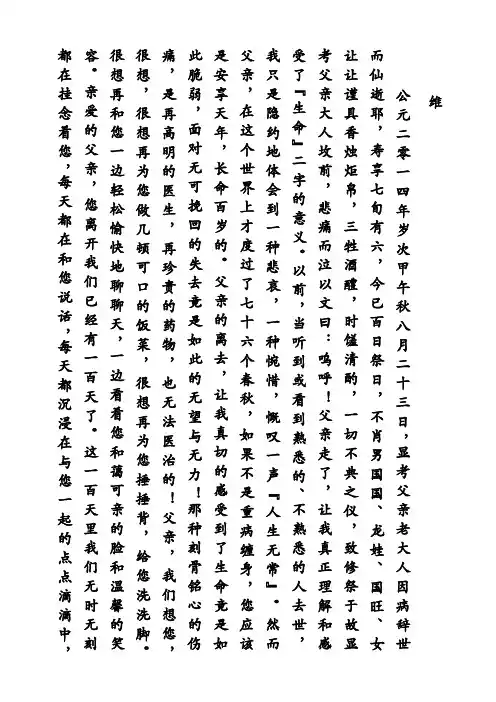 维
公元二零一四年岁次甲午秋八月二十三日，显考父亲老大人因病辞世
而仙逝耶，寿享七旬有六，今已百日祭日，不肖男国国、龙娃、国旺、女
让让谨具香烛炬帛，三牲酒醴，时馐清酌，一切不典之仪，致修祭于故显
考父亲大人坟前，悲痛而泣以文曰：呜呼！父亲走了，让我真正理解和感
受了『生命』二字的意义。以前，当听到或看到熟悉的、不熟悉的人去世，
我只是隐约地体会到一种悲哀，一种惋惜，慨叹一声『人生无常』。然而
父亲，在这个世界上才度过了七十六个春秋，如果不是重病缠身，您应该
是安享天年，长命百岁的。父亲的离去，让我真切的感受到了生命竟是如
此脆弱，面对无可挽回的失去竟是如此的无望与无力！那种刻骨铭心的伤
痛，是再高明的医生，再珍贵的药物，也无法医治的！父亲，我们想您，
很想，很想再为您做几顿可口的饭菜，很想再为您捶捶背，给您洗洗脚。
很想再和您一边轻松愉快地聊聊天，一边看看您和蔼可亲的脸和温馨的笑
容。亲爱的父亲，您离开我们已经有一百天了。这一百天里我们无时无刻
都在挂念着您，每天都在和您说话，每天都沉浸在与您一起的点点滴滴中，